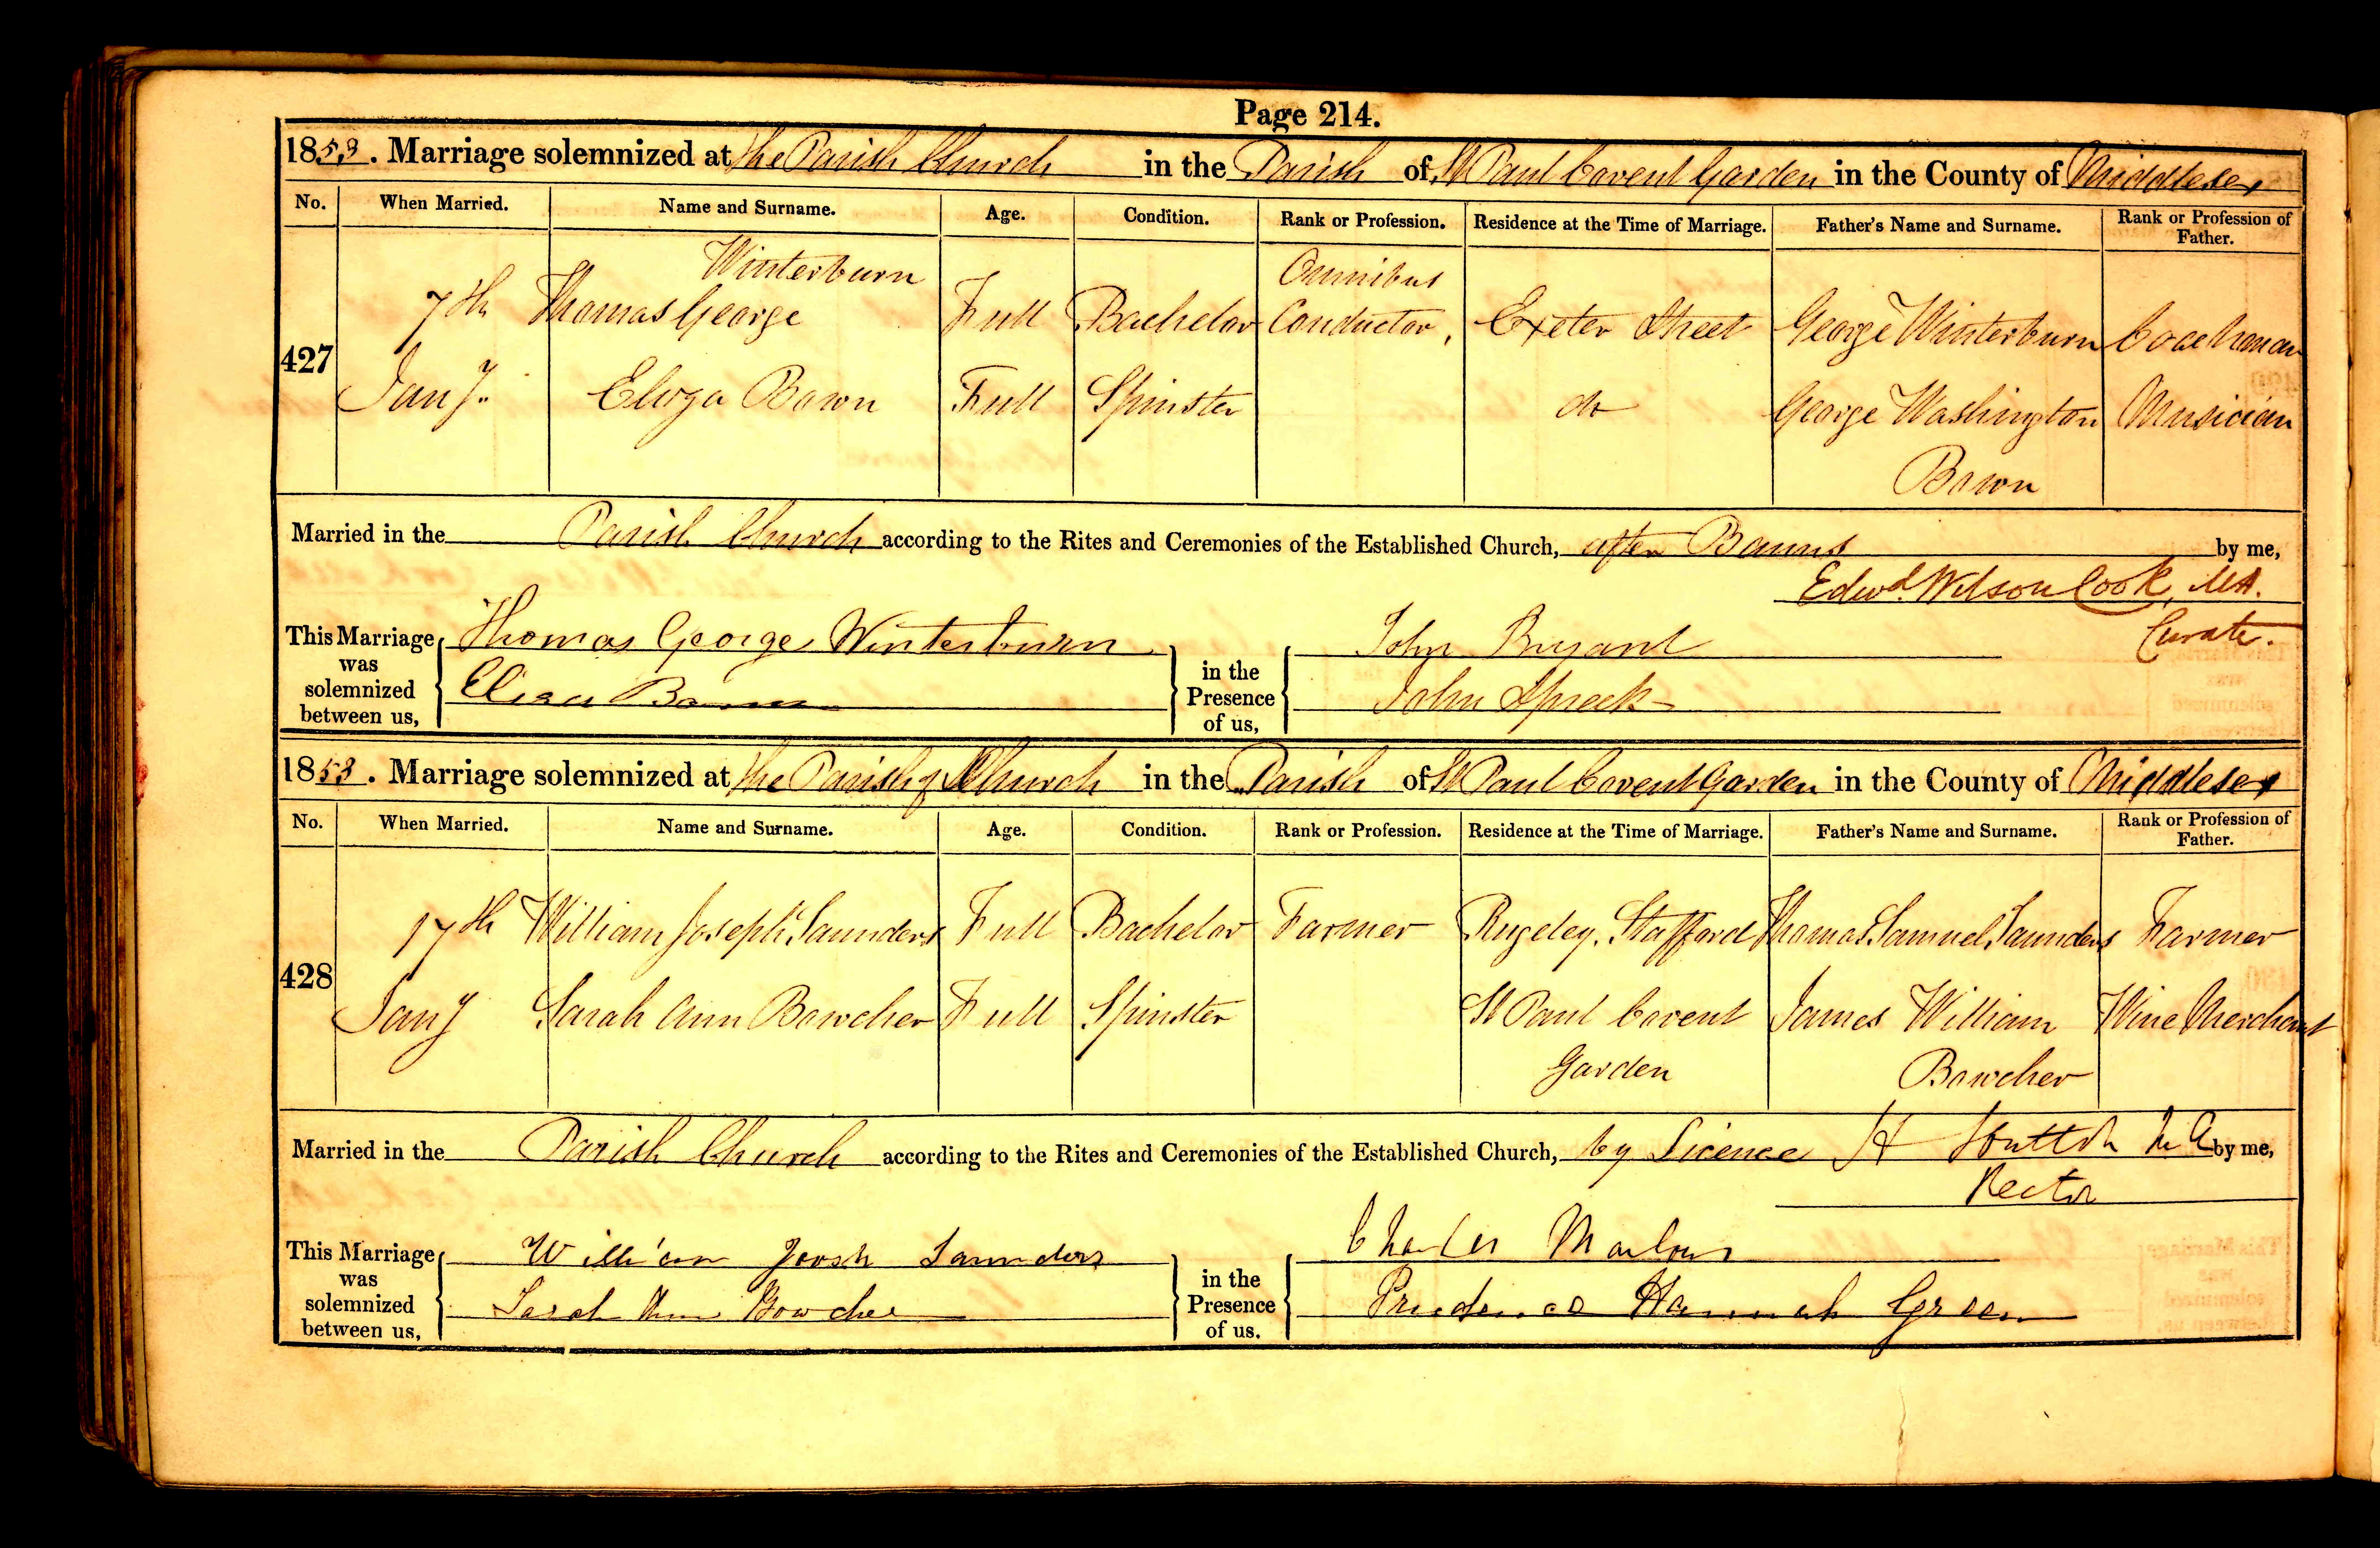 Page 214.
1853. Marriage solemnized at the Parish Church in the Parish of St Paul Covent Garden in the County of Middlesex
No. When Married. Name and Surname. Age. Condition. Rank or Profession. Residence at the Time of Marriage. Father's Name and Surname. Rank or Profession of Father.
427 7th Jany. Thomas George Winterburn Full Bachelor Omnibus Conductor, Exeter Street George Winterburn Coachman
Eliza Bown Full Spinster do George Washington Bown Musician
Married in the Parish Church according to the Rites and Ceremonies of the Established Church, after Banns by me,
Edwd. Wilson Cook, MA.
Curate.
This Marriage was solemnized between us, Thomas George Winterburn in the Presence of us, John Bryant
Eliza Bown John Speck
1853. Marriage solemnized at the Parish Church in the Parish of St Paul Covent Garden in the County of Middlesex
No. When Married. Name and Surname. Age. Condition. Rank or Profession. Residence at the Time of Marriage. Father's Name and Surname. Rank or Profession of Father.
428 17th Jany William Joseph Saunders Full Bachelor Farmer Rugeley. Stafford Thomas Samuel Saunders Farmer
Sarah Ann Bowcher Full Spinster St Paul Covent Garden James William Bowcher Wine Merchant
Married in the Parish Church according to the Rites and Ceremonies of the Established Church, by Licence H Hutton MA by me,
Rector
This Marriage was solemnized between us, William Joosh Saunders in the Presence of us. Charles
Sarah Ann Bowcher Prudence Hannah Green